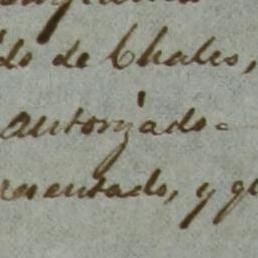 do de Chales,
autorizado.
resentado, y q